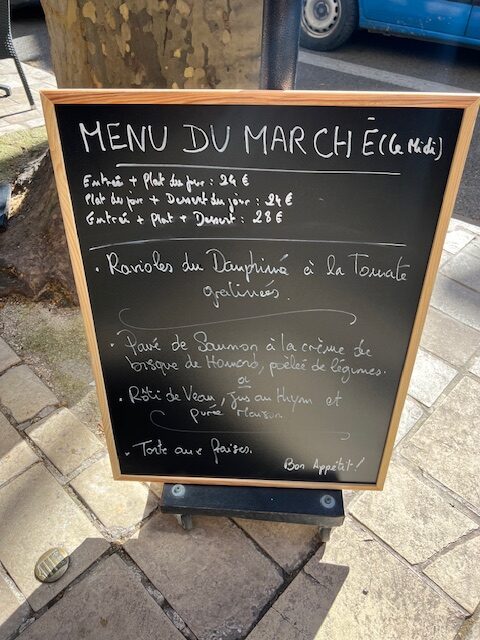 MENU DU MARCHÉ (Le Midi)
Entrée + Plat du jour : 24 €
Plat du jour + Dessert du jour : 24 €
Entrée + Plat + Dessert : 28 €
• Ravioles du Dauphiné à la Tomate
gratinées.
• Pavé de Saumon à la crème de
bisque de Homard, poêlée de légumes.
ou
• Rôti de Veau, jus au thym et
purée Maison
• Tarte aux fraises.
Bon Appétit !